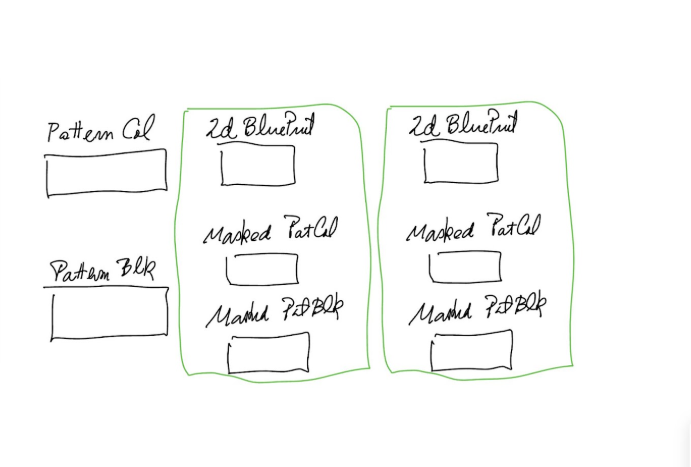 Pattern Col
Pattern Blk
2d BluePrint
Masked PatCol
Masked PatBlk
2d BluePrint
Masked PatCol
Masked PatBlk